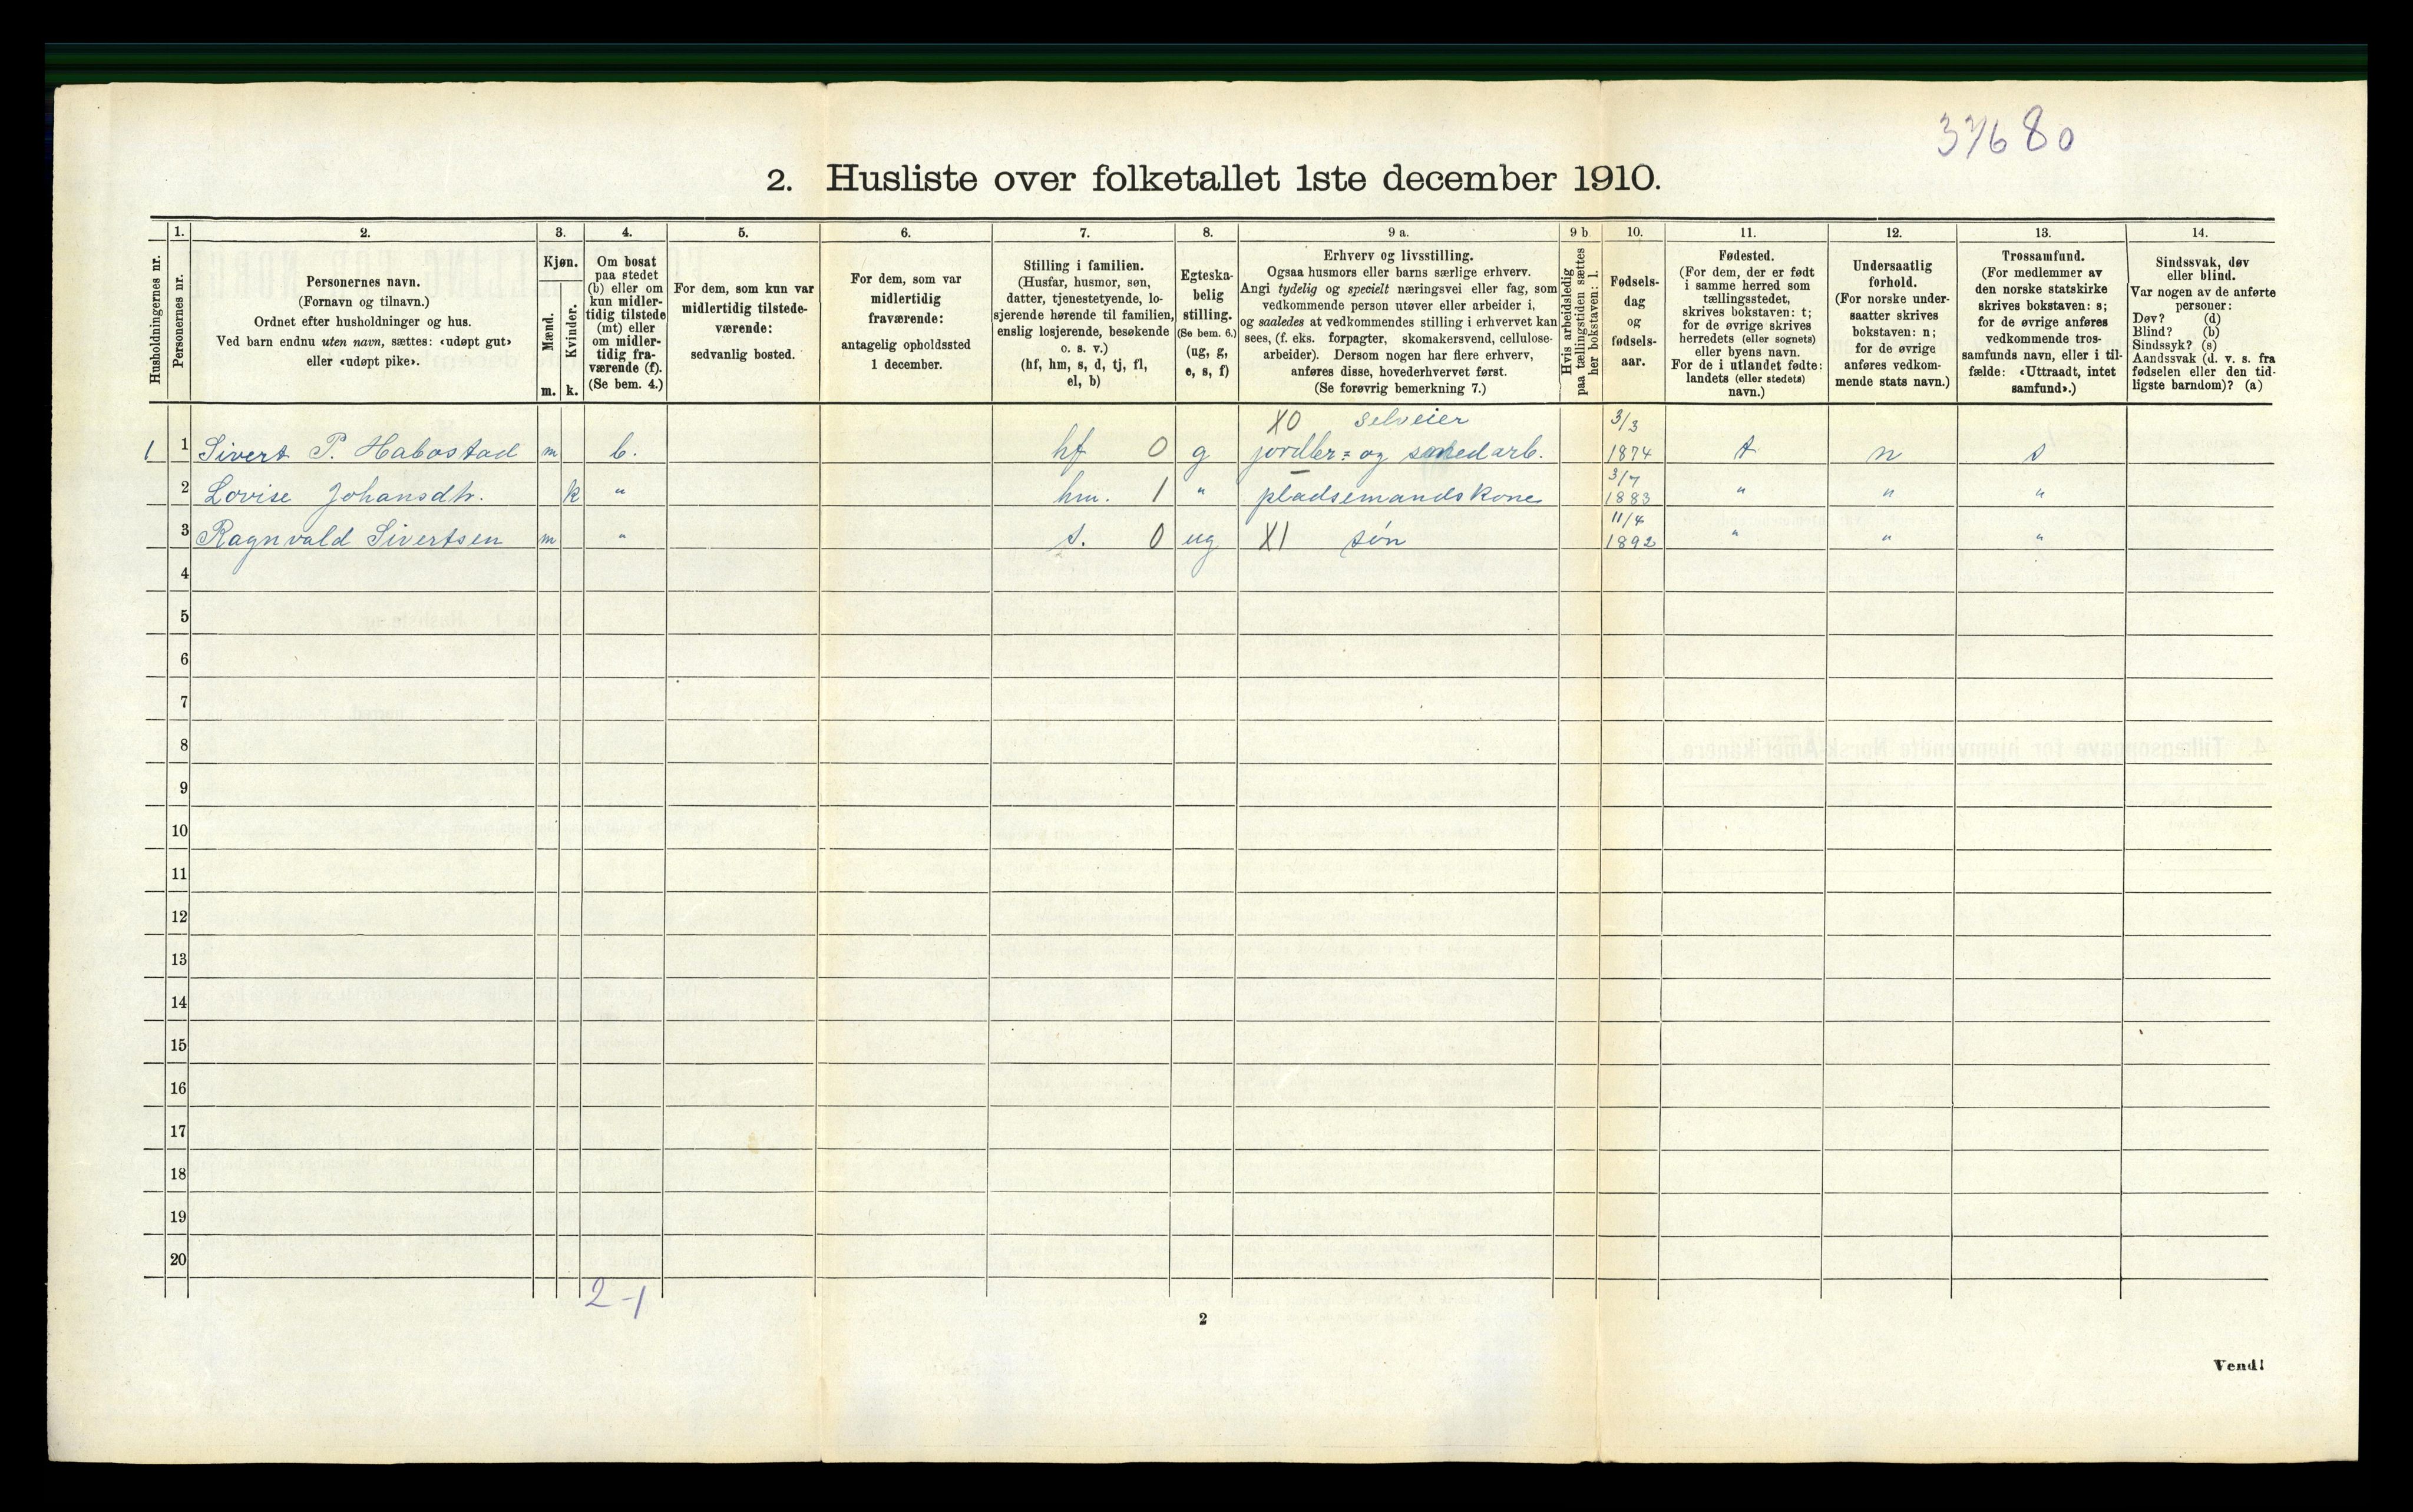 37680
2. Husliste over folketallet 1ste december 1910.
Husholdningernes nr.
1.
Personernes nr.
2.
Personernes navn.
(Fornavn og tilnavn.)
Ordnet efter husholdninger og hus.
Ved barn endnu uten navn, sættes: «udøpt gut»
eller «udøpt pike».
3.
Kjøn.
Mænd.
m.
Kvinder.
k.
4.
Om bosat
paa stedet
(b) eller om
kun midler-
tidig tilstede
(mt) eller
om midler-
tidig fra-
værende (f).
(Se bem. 4.)
5.
For dem, som kun var
midlertidig tilstede-
værende:
sedvanlig bosted.
6.
For dem, som var
midlertidig
fraværende:
antagelig opholdssted
1 december.
7.
Stilling i familien.
(Husfar, husmor, søn,
datter, tjenestetyende, lo-
sjerende hørende til familien,
enslig losjerende, besøkende
o. s. v.)
(hf, hm, s, d, tj, fl,
el, b)
8.
Egteska-
belig
stilling.
(Se bem. 6.)
(ug, g,
e, s, f)
9 a.
Erhverv og livsstilling.
Ogsaa husmors eller barns særlige erhverv.
Angi tydelig og specielt næringsvei eller fag, som
vedkommende person utøver eller arbeider i,
og saaledes at vedkommendes stilling i erhvervet kan
sees, (f. eks. forpagter, skomakersvend, cellulose-
arbeider). Dersom nogen har flere erhverv,
anføres disse, hovederhvervet først.
(Se forøvrig bemerkning 7.)
9 b.
Hvis arbeidsledig
paa tællingstiden sættes
her bokstaven: l.
10.
Fødsels-
dag
og
fødsels-
aar.
11.
Fødested.
(For dem, der er født
i samme herred som
tællingsstedet,
skrives bokstaven: t;
for de øvrige skrives
herredets (eller sognets)
eller byens navn.
For de i utlandet fødte:
landets (eller stedets)
navn.)
12.
Undersaatlig
forhold.
(For norske under-
saatter skrives
bokstaven: n;
for de øvrige
anføres vedkom-
mende stats navn.)
13.
Trossamfund.
(For medlemmer av
den norske statskirke
skrives bokstaven: s;
for de øvrige anføres
vedkommende tros-
samfunds navn, eller i til-
fælde: «Uttraadt, intet
samfund».)
14.
Sindssvak, døv
eller blind.
Var nogen av de anførte
personer:
Døv? (d)
Blind? (b)
Sindssyk? (s)
Aandssvak (d. v. s. fra
fødselen eller den tid-
ligste barndom)? (a)
X0 selveier 3/3
1 1 Sivert P. Habostad m b. hf 0 g jordbr= og smedarb. 1874 t n s
3/7
2 Lovise Johansdtr. k " hm. 1 " pladsemandskone 1883 " " "
11/4
3 Ragnvald Sivertsen m " s. 0 ug X1 søn 1892 " " "
4
5
6
7
8
9
10
11
12
13
14
15
16
17
18
19
20
2-1
2
Vend!